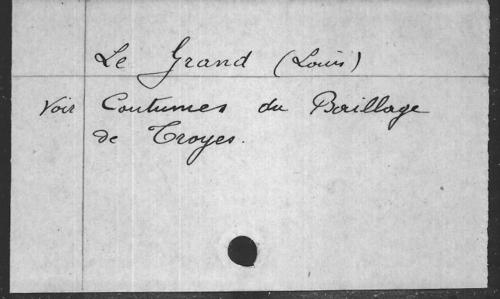 Le Grand (Louis)
Voir Coutumes du Baillage
de Troyes.